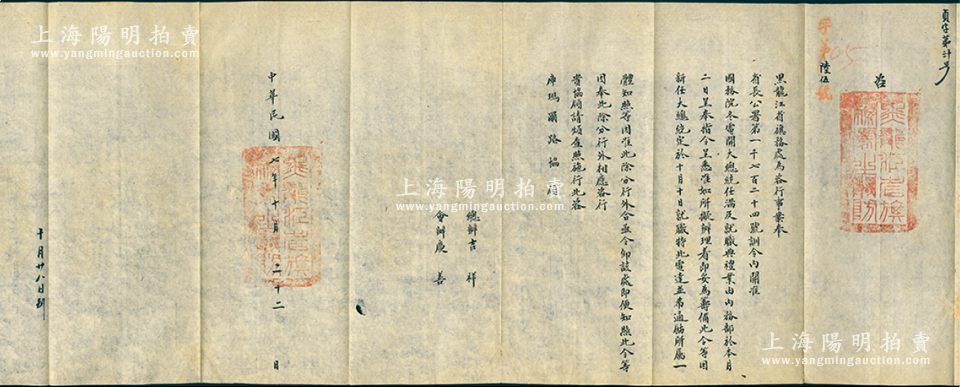 貞字第廿号
陸伍號
咨
黑龍江省旗務處為咨行事案奉
省長公署第一千七百二十四號訓令內開准
國務院冬電開大總統任滿及就職典禮業由內務部於本月
二日呈奉指令呈悉准如所擬辦理着即妥為籌備此令等因
新任大總統定於十月十日就職特此電達並希通飭所屬一
體知照等因准此除分行外合亟令仰該處即便知照此令等
因奉此除分行外相應咨行
貴協領請煩查照施行此咨
庫瑪爾路協領
總辦吉祥
會辦慶善
中華民國七年十月二十二日
十月廿八日到
上海陽明拍賣
www.yangmingauction.com
上海陽明拍賣
www.yangmingauction.com
上海陽明拍賣
www.yangmingauction.com